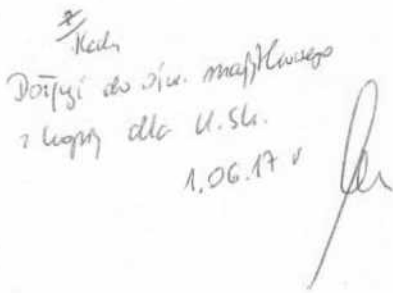 Kadry
Dołączyć do ośw. majątkowego
z kopią dla U.Sk.
1.06.17 r